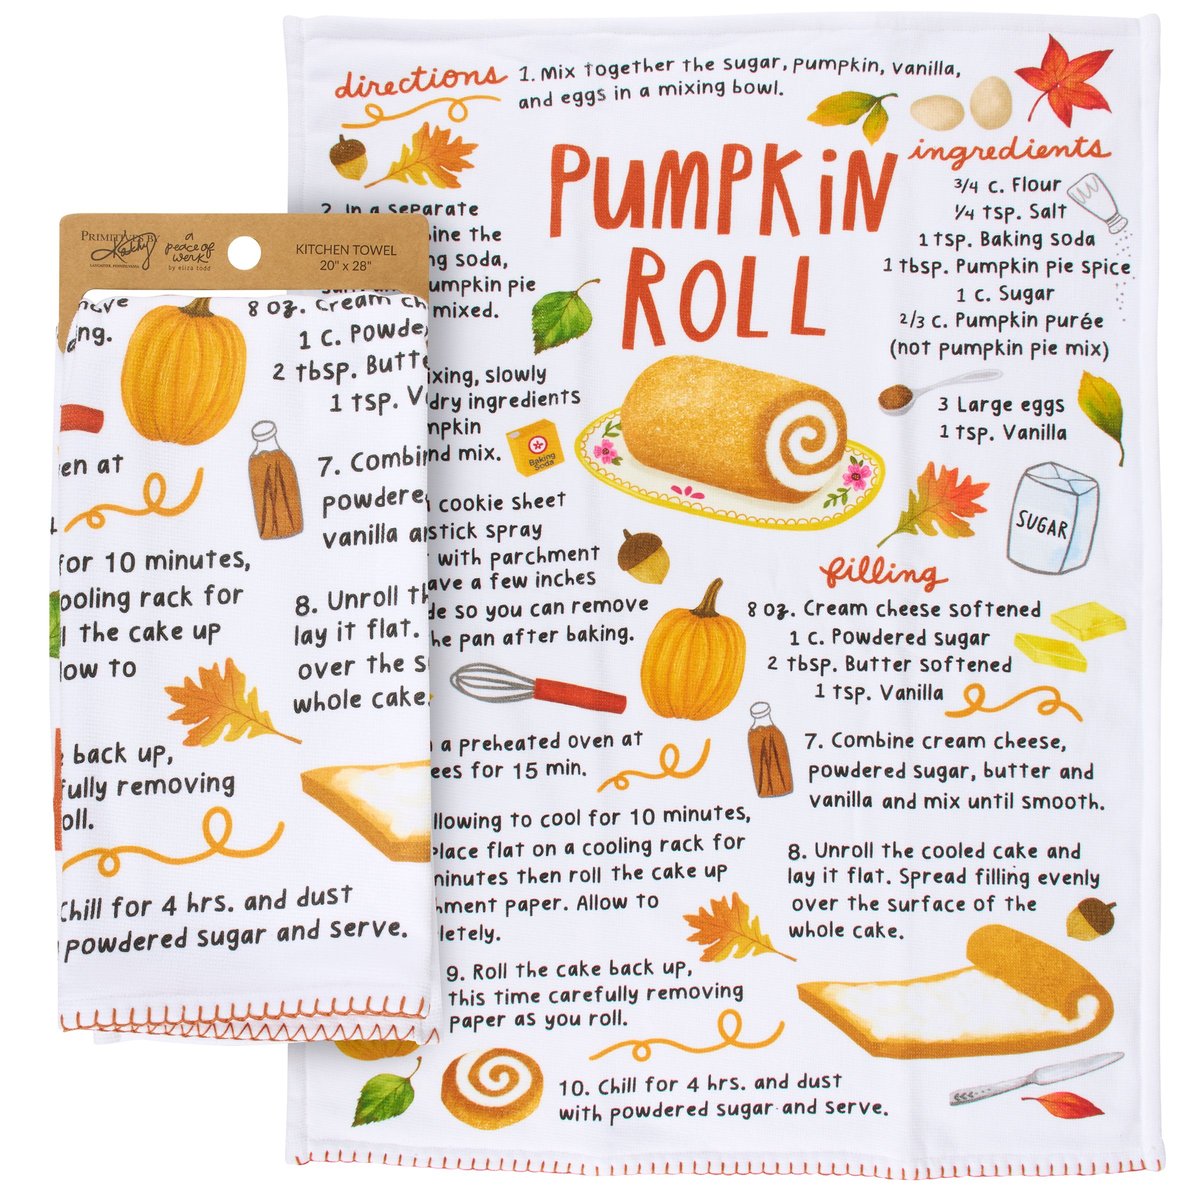 directions
1. Mix together the sugar, pumpkin, vanilla,
and eggs in a mixing bowl.
PUMPKIN
ROLL
ingredients
3/4 c. Flour
1/4 tsp. Salt
1 tsp. Baking soda
1 tbsp. Pumpkin pie spice
1 c. Sugar
2/3 c. Pumpkin purée
(not pumpkin pie mix)
3 Large eggs
1 tsp. Vanilla
SUGAR
2. In a separate
the
soda,
pumpkin pie
mixed.
slowly
dry ingredients
and mix.
Baking
Soda
cookie sheet
spray
with parchment
a few inches
so you can remove
the pan after baking.
a preheated oven at
for 15 min.
to cool for 10 minutes,
flat on a cooling rack for
then roll the cake up
paper. Allow to
filling
8 oz. Cream cheese softened
1 c. Powdered sugar
2 tbsp. Butter softened
1 tsp. Vanilla
7. Combine cream cheese,
powdered sugar, butter and
vanilla and mix until smooth.
8. Unroll the cooled cake and
lay it flat. Spread filling evenly
over the surface of the
whole cake.
9. Roll the cake back up,
this time carefully removing
paper as you roll.
10. Chill for 4 hrs. and dust
with powdered sugar and serve.
PRIMITIVES BY
Kathy
LANCASTER, PENNSYLVANIA
a
peace of
work
by eliza todd
KITCHEN TOWEL
20" x 28"
8 oz. Cream
1 c.
2 tbsp.
1 tsp.
at
7.
vanilla
for 10 minutes,
rack for
the cake up
to
8. Unroll
lay it flat.
over the
whole cake.
back up,
removing
Chill for 4 hrs. and dust
powdered sugar and serve.